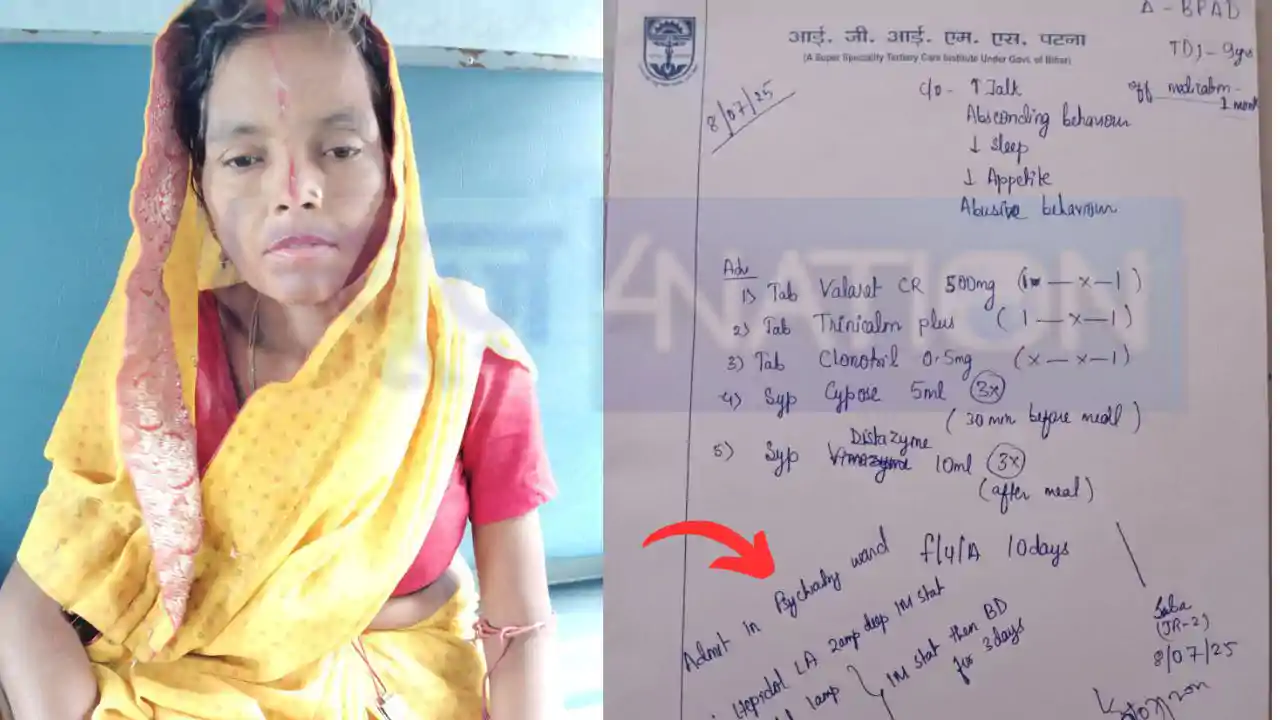 Δ - BPAD
आई. जी. आई. एम. एस. पटना
(A Super Speciality Tertiary Care Institute Under Govt. of Bihar)
TDI - 9yrs
off medication -
1 month
8/07/25
c/o - ↑ Talk
Absconding behaviour
↓ Sleep
↓ Appetite
Abusive behaviour
4NATION
Adv
1) Tab Valaret CR 500mg (1 — x — 1)
2) Tab Trinicalm plus (1 — x — 1)
3) Tab Clonotril 0.5mg (x — x — 1)
4) Syp Cypose 5ml 3x
(30 min before meal)
Distazyme
5) Syp 10ml 3x
(after meal)
Admit in Psychiatry ward f/u/A 10days
LA 2amp deep IM stat
1amp IM stat then BD
for 3days
Saba
(JR-2)
8/07/25